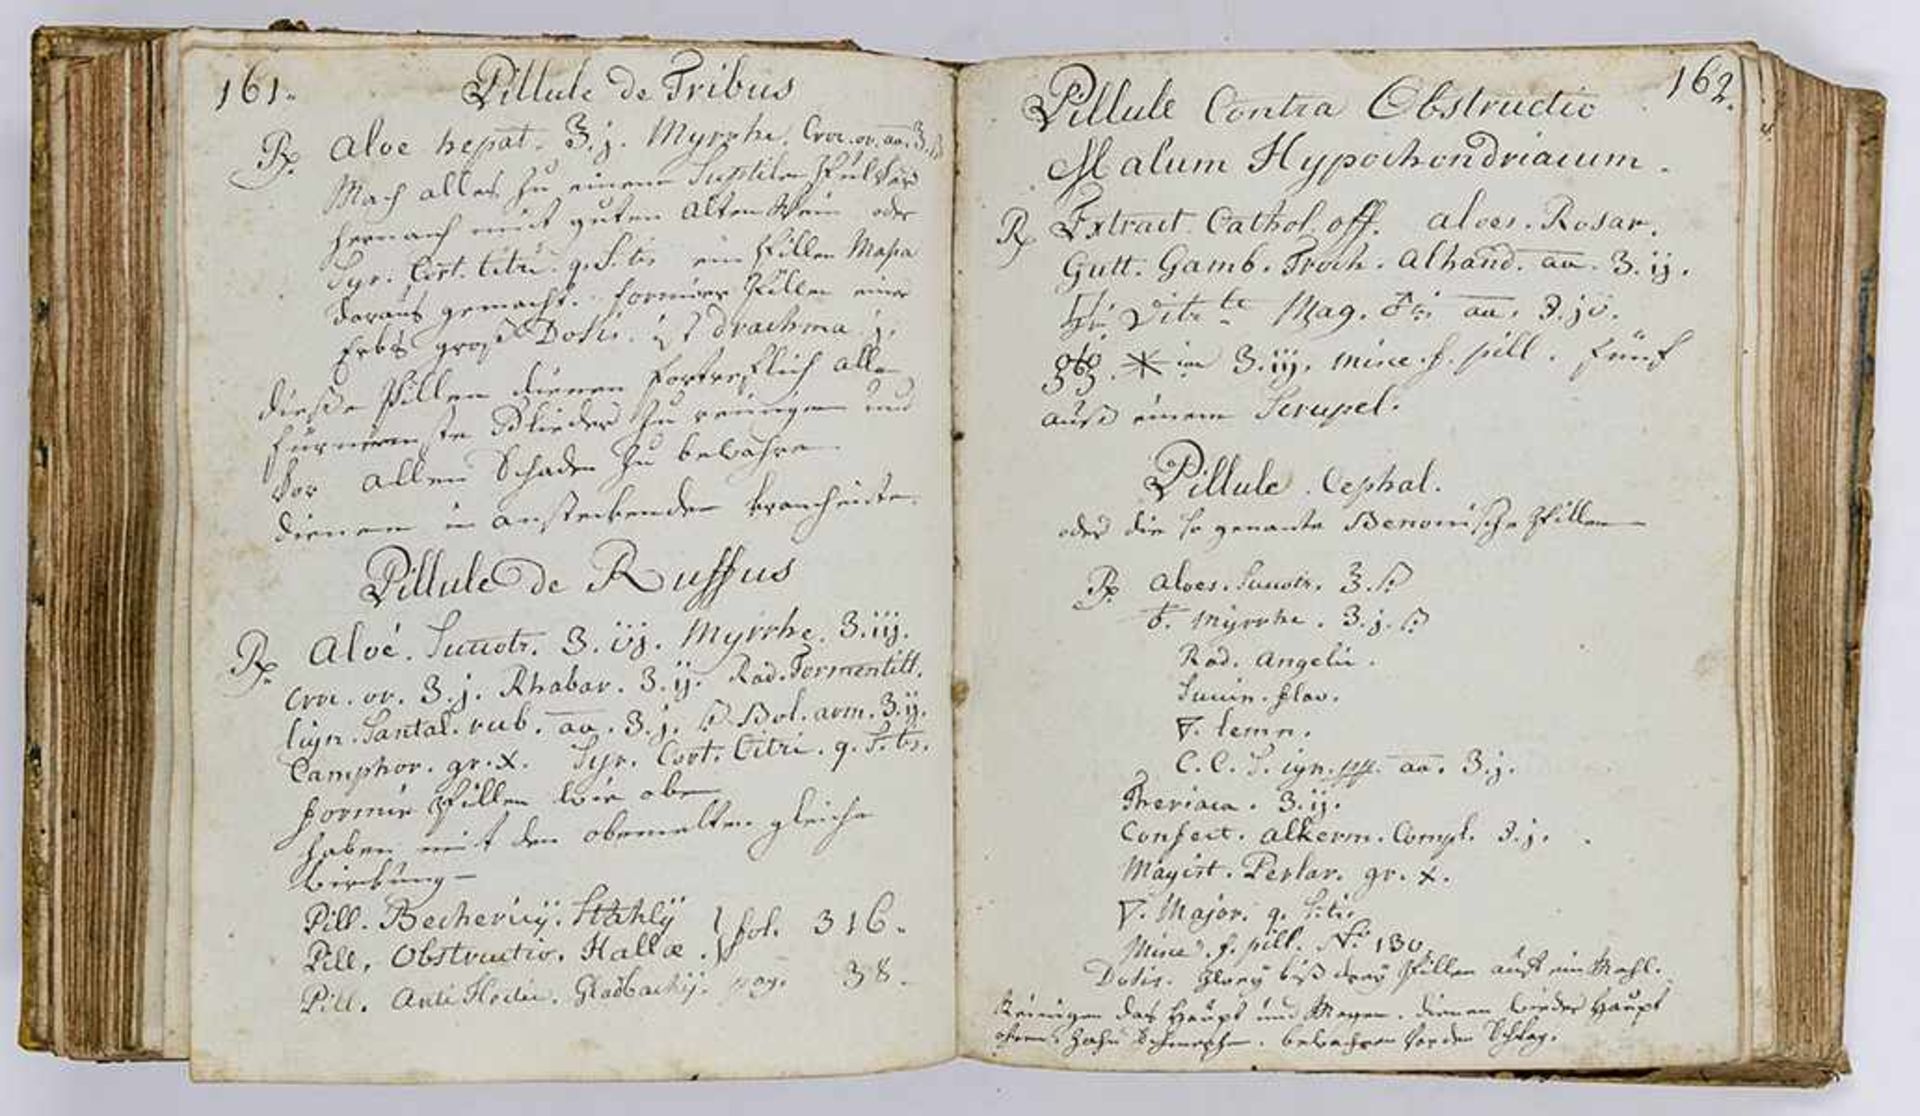 161.
Pillule de Tribus
Rx. Aloe hepat. ʒ.j. Myrrhe. Croc. or. aa. ʒ.ß
Mach alles zu einem Suptilen Pulver
hernach mit guten alten Wein oder
Syr. Cort. Citri. q. S. tis ein Pillen Massa
daraus gemacht. formire Pillen einer
Erbs groß Dosis. ist drachma j.
diese Pillen dienen fortreflich alle
fürnemste Glieder zu reinigen und
vor allen Schaden zu bewahren.
dienen in ansteckenden kranckheiten
Pillule de Ruffus
Rx. Aloé. Succotr. ʒ.vj. Myrrhe. ʒ.iij.
Croc. or. ʒ.j. Rhabar. ʒ.ij. Rad. Tormentill.
lign. Santal. rub. aa. ʒ.j. ß. Bol. arm. ʒ.ij.
Camphor. gr. x. Syr. Cort. Citri. q. S. tis.
formir Pillen wie oben
haben mit den obemelten gleiche
wirckung –
Pill. Becherij. Stahlij } fol. 316.
Pill. Obstructio. Hallæ.
Pill. Anti Hectic. Gladbachij. pag. 38.
162.
Pillule Contra Obstructio
Malum Hypochondriacum.
Rx Extract. Cathol. off. aloes. Rosar.
Gutt. Gamb. Troch. alhand. aa. ʒ.ij.
Mag. aa.
ʒ.iij. misce. f. pill. fünf
auß einem Scrupel.
Pillule. Cephal.
oder die so genante Benonische Pillen
Rx. aloes. Succotr. ʒ.ß
Myrrhe. ʒ.j.ß
Rad. Angelic.
Succin. flav.
🜃. lemn.
C. C. S. ign. pp. aa. ʒ.j.
Theriaca. ʒ.ij.
Confect. alkerm. Compl. ʒ.j.
Magist. Perlar. gr. x.
Major. q. S. tis.
Misce. f. pill. No. 130
Dosis. zwey biß drey Pillen auf ein Mahl.
Reinigen das Haupt und Magen. dienen wieder Haupt
Zahn Schmerzen. bewahren vor den Schlag.